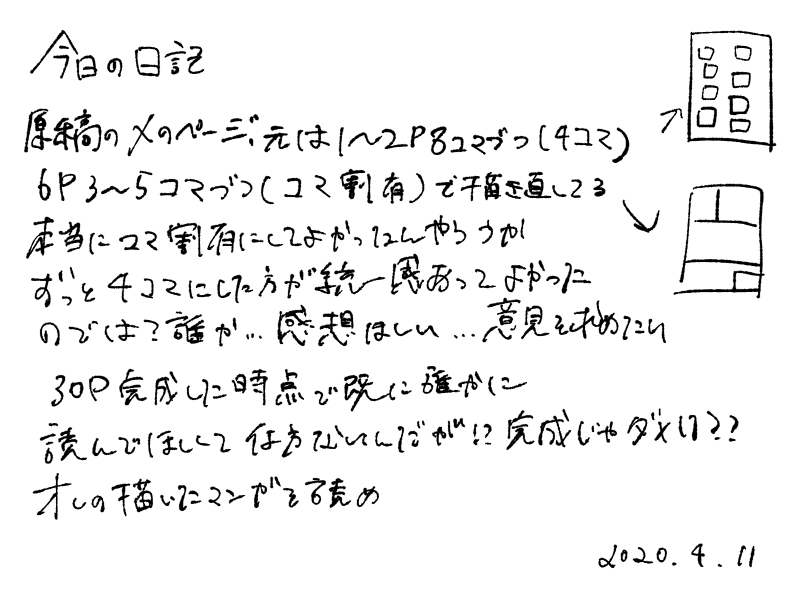 今日の日記
原稿の〆のページ、元は1〜2P8コマづつ(4コマ)
6P3〜5コマづつ(コマ割有)で描き直してる
本当にコマ割有にしてよかったんやろうか
ずっと4コマにした方が統一感あってよかった
のでは?誰か…感想ほしい…意見を求めたい
30P完成した時点で既に誰かに
読んでほしくて仕方ないんだが!?完成じゃダメけ??
オレの描いたマンガを読め
2020.4.11